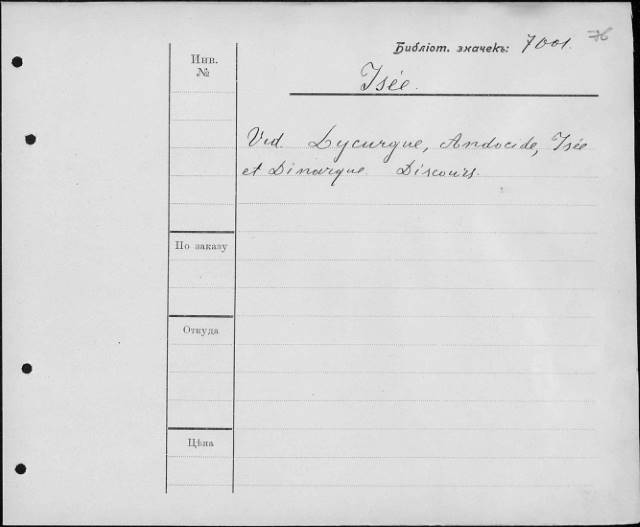 Библіот. значекъ: 7001.
Инв.
№
Isée.
Vid. Lycurgue, Andocide, Isée
et Dinarque. Discours.
По заказу
Откуда
Цѣна